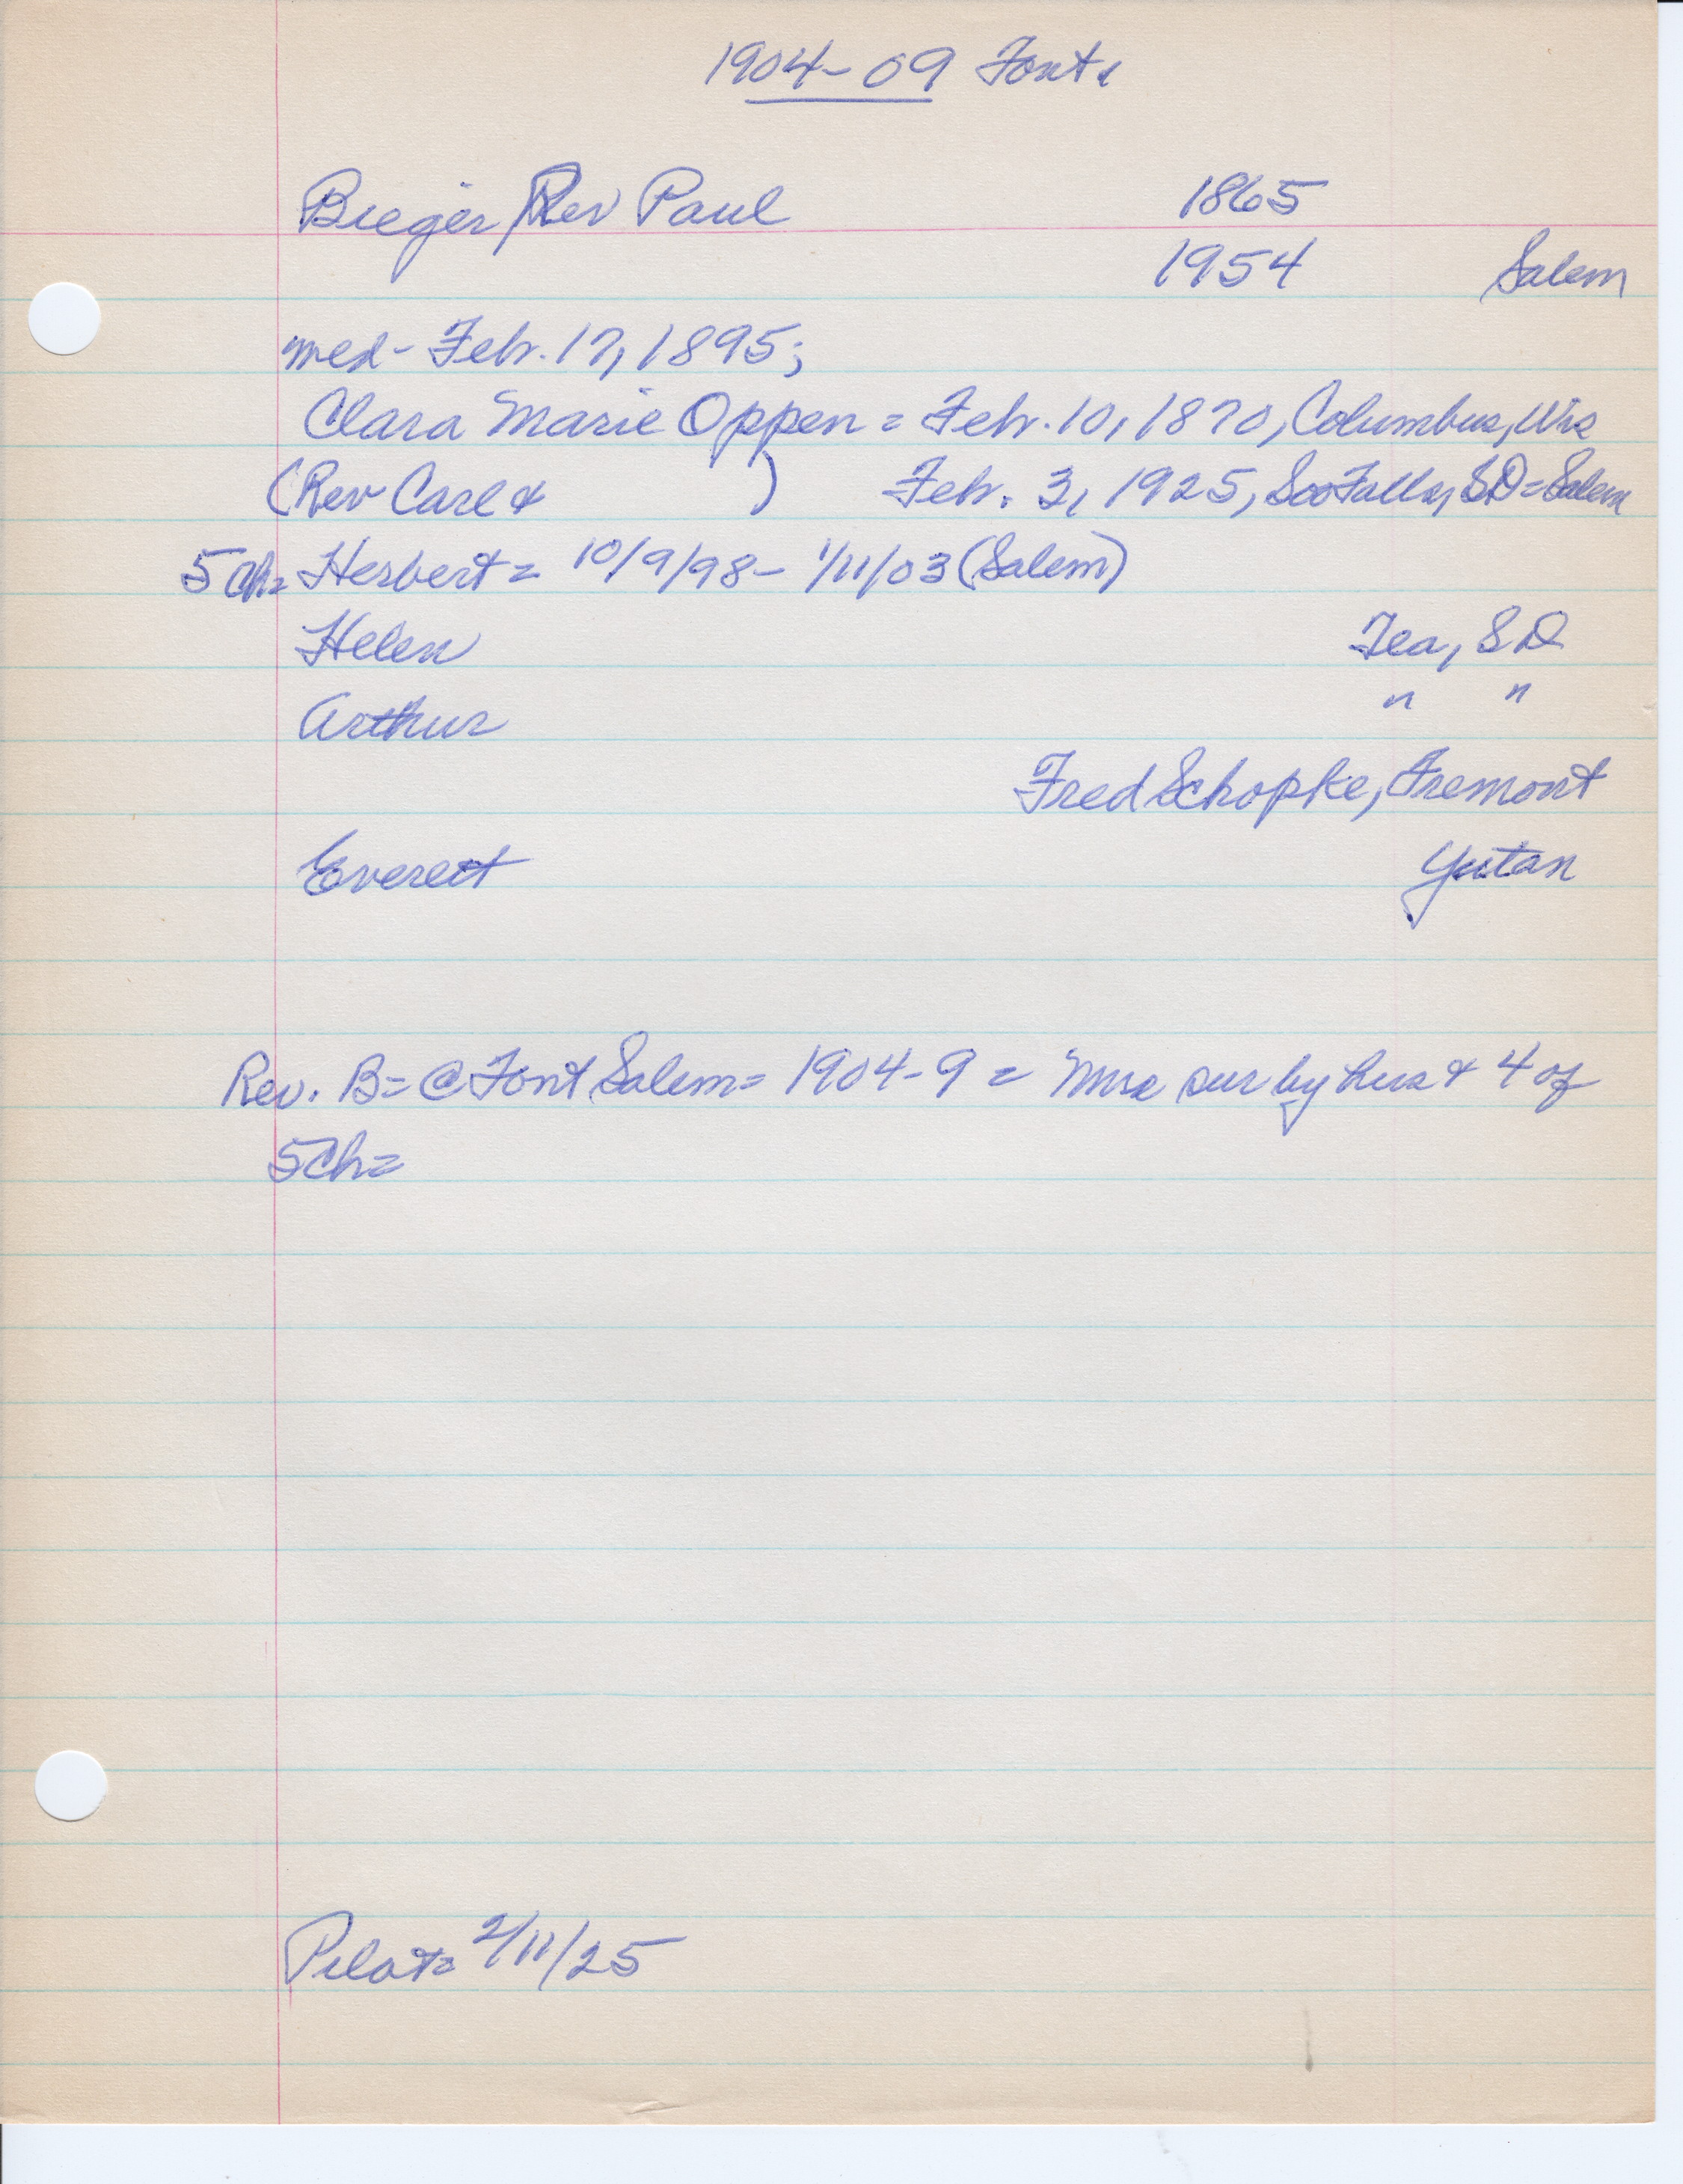 1904-09 Font
Bieger, Rev Paul 1865
1954 Salem
med- Feb. 17, 1895;
Clara Marie Oppen = Feb. 10, 1870, Columbus, Wis
(Rev Carl & ) Feb. 3, 1925, Soo Falls, SD = Salem
5 Ch= Herbert = 10/9/98- 1/11/03 (Salem)
Helen Tea, SD
Arthur " "
Fred Schopke, Fremont
Everett Yutan
Rev. B= @ Font Salem= 1904-9 = Mrs sur by hus & 4 of
5Ch=
Pilot= 2/11/25